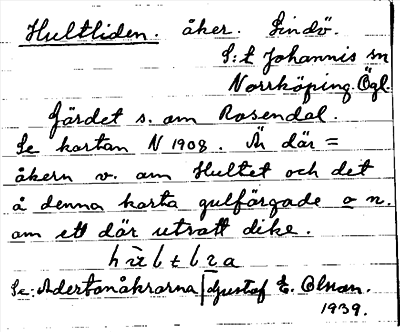 Hultliden. åker. Lindö.
S:t Johannis sn
Norrköping. Ögl.
Gärdet s. om Rosendal.
Se kartan N 1908. Är där =
åkern v. om Hultet och det
å denna karta gulfärgade o n.
om ett där utsatt dike.
Se: Adertonåkrarna / Gustaf E. Olson.
1939.